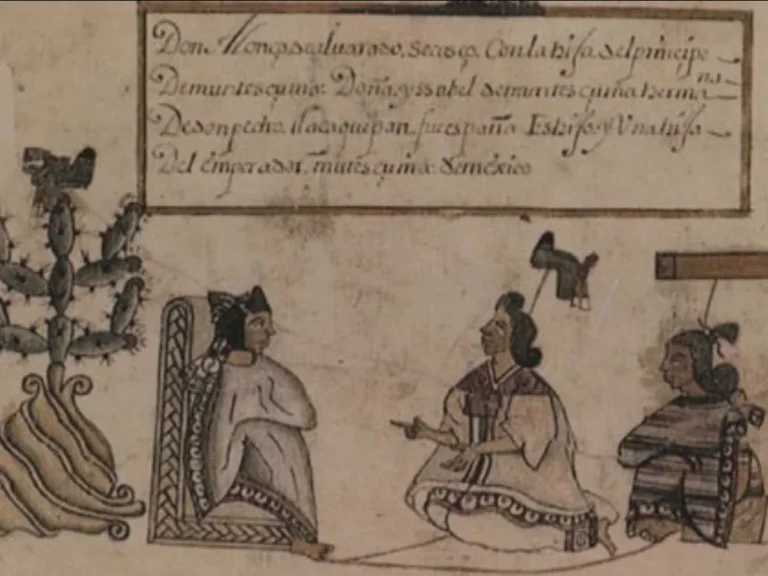 Don Alonço de aluarado. se caso. Con la hija del prinçipe
De muntesçuma. Doña yssabel de muntesçuma herma na
De don pedro tlacaquepan. fue españa Es hijo y Una hija
Del Emperador, mutesçuma de mexico